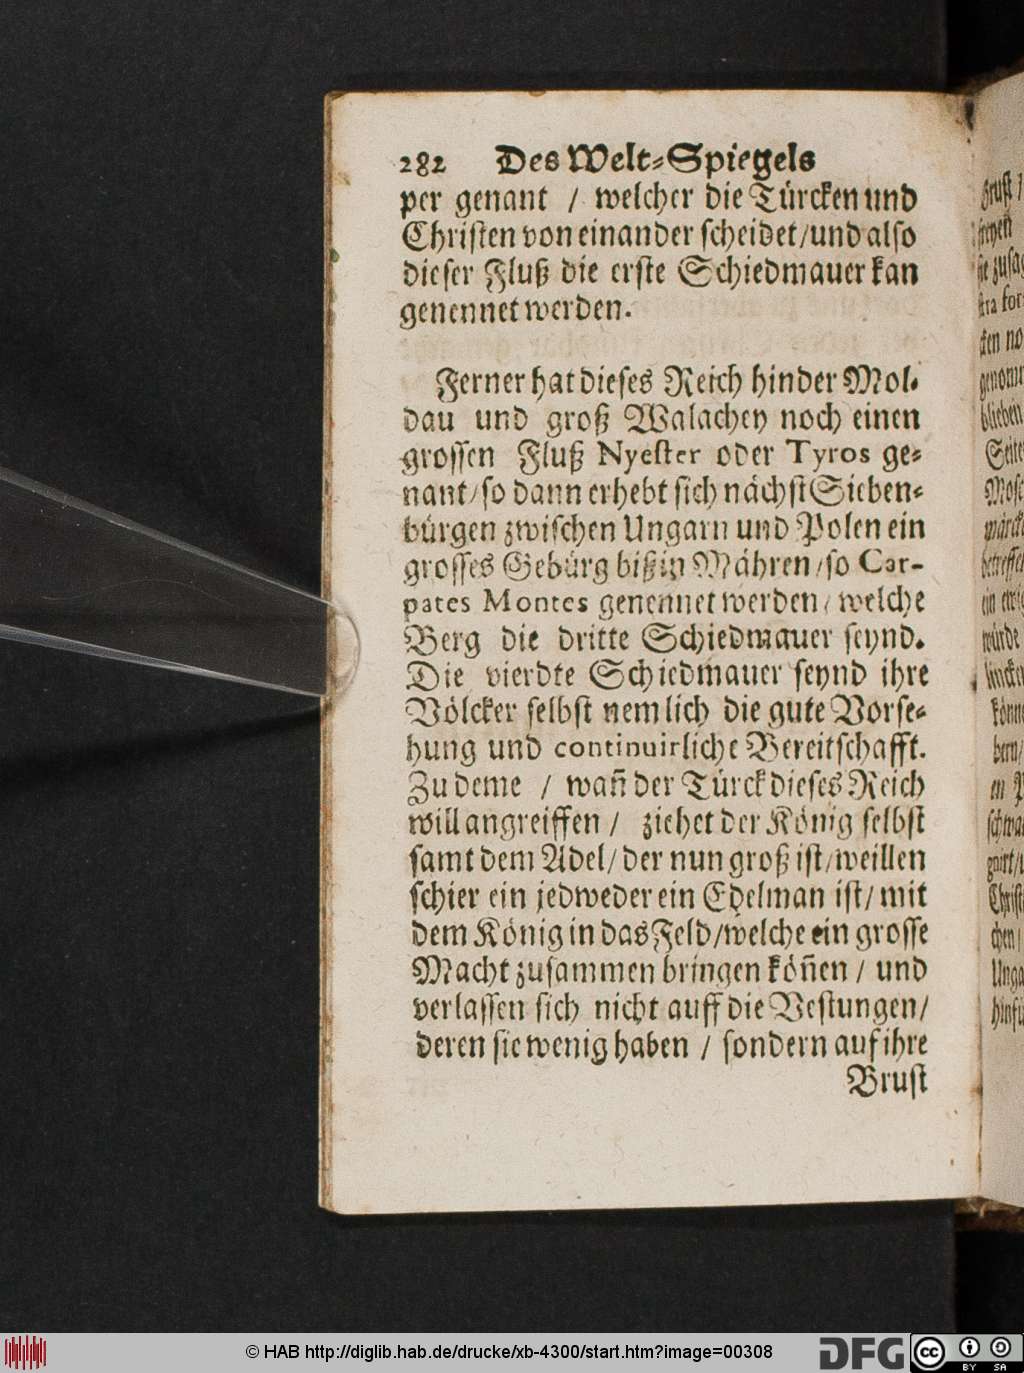 282 Des Welt-Spiegels
per genant / welcher die Türcken und
Christen von einander scheidet/und also
dieser Fluß die erste Schiedmauer kan
genennet werden.
Ferner hat dieses Reich hinder Mol-
dau und groß Walachey noch einen
grossen Fluß Nyester oder Tyros ge-
nant/so dann erhebt sich nächst Sieben-
bürgen zwischen Ungarn und Polen ein
grosses Gebürg biß in Mähren/so Car-
pates Montes genennet werden/welche
Berg die dritte Schiedmauer seynd.
Die vierdte Schiedmauer seynd ihre
Völcker selbst nemlich die gute Vorse-
hung und continuirliche Bereitschafft.
Zu deme / wañ der Türck dieses Reich
will angreiffen / ziehet der König selbst
samt dem Adel/der nun groß ist/weillen
schier ein jedweder ein Edelman ist/mit
dem König in das Feld/welche ein grosse
Macht zusammen bringen köñen / und
verlassen sich nicht auff die Vestungen/
deren sie wenig haben / sondern auf ihre
Brust
© HAB http://diglib.hab.de/drucke/xb-4300/start.htm?image=00308
DFG
cc BY SA